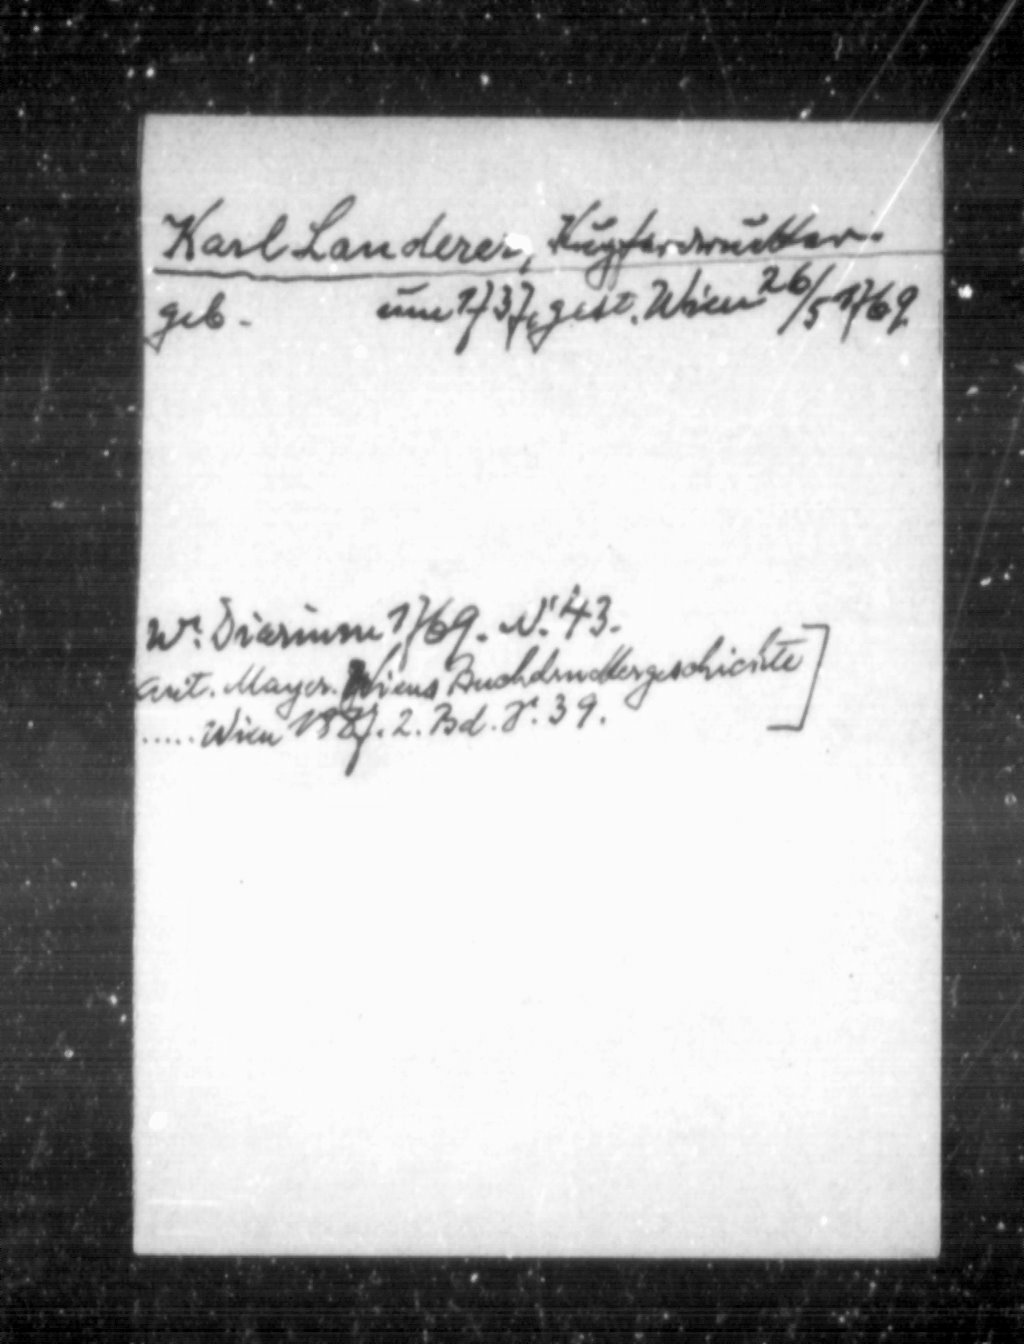 Karl Landerer, Kupferdrucker.
geb. um 1737, gest. Wien 26/5 1769.
Wr. Diarium 1769. Nr. 43.
Ant. Mayer. Wiens Buchdruckergeschichte
..... Wien 1887. 2. Bd. S. 39. ]